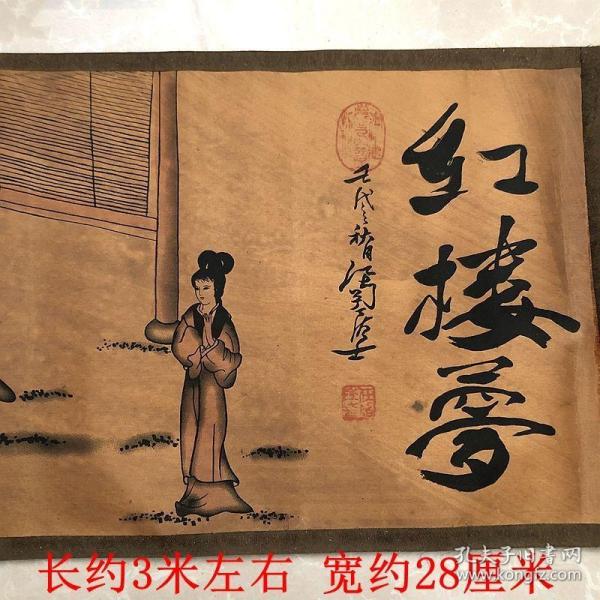 红楼梦
壬戌之秋月
长约3米左右 宽约28厘米
孔夫子旧书网
www.kongfz.com